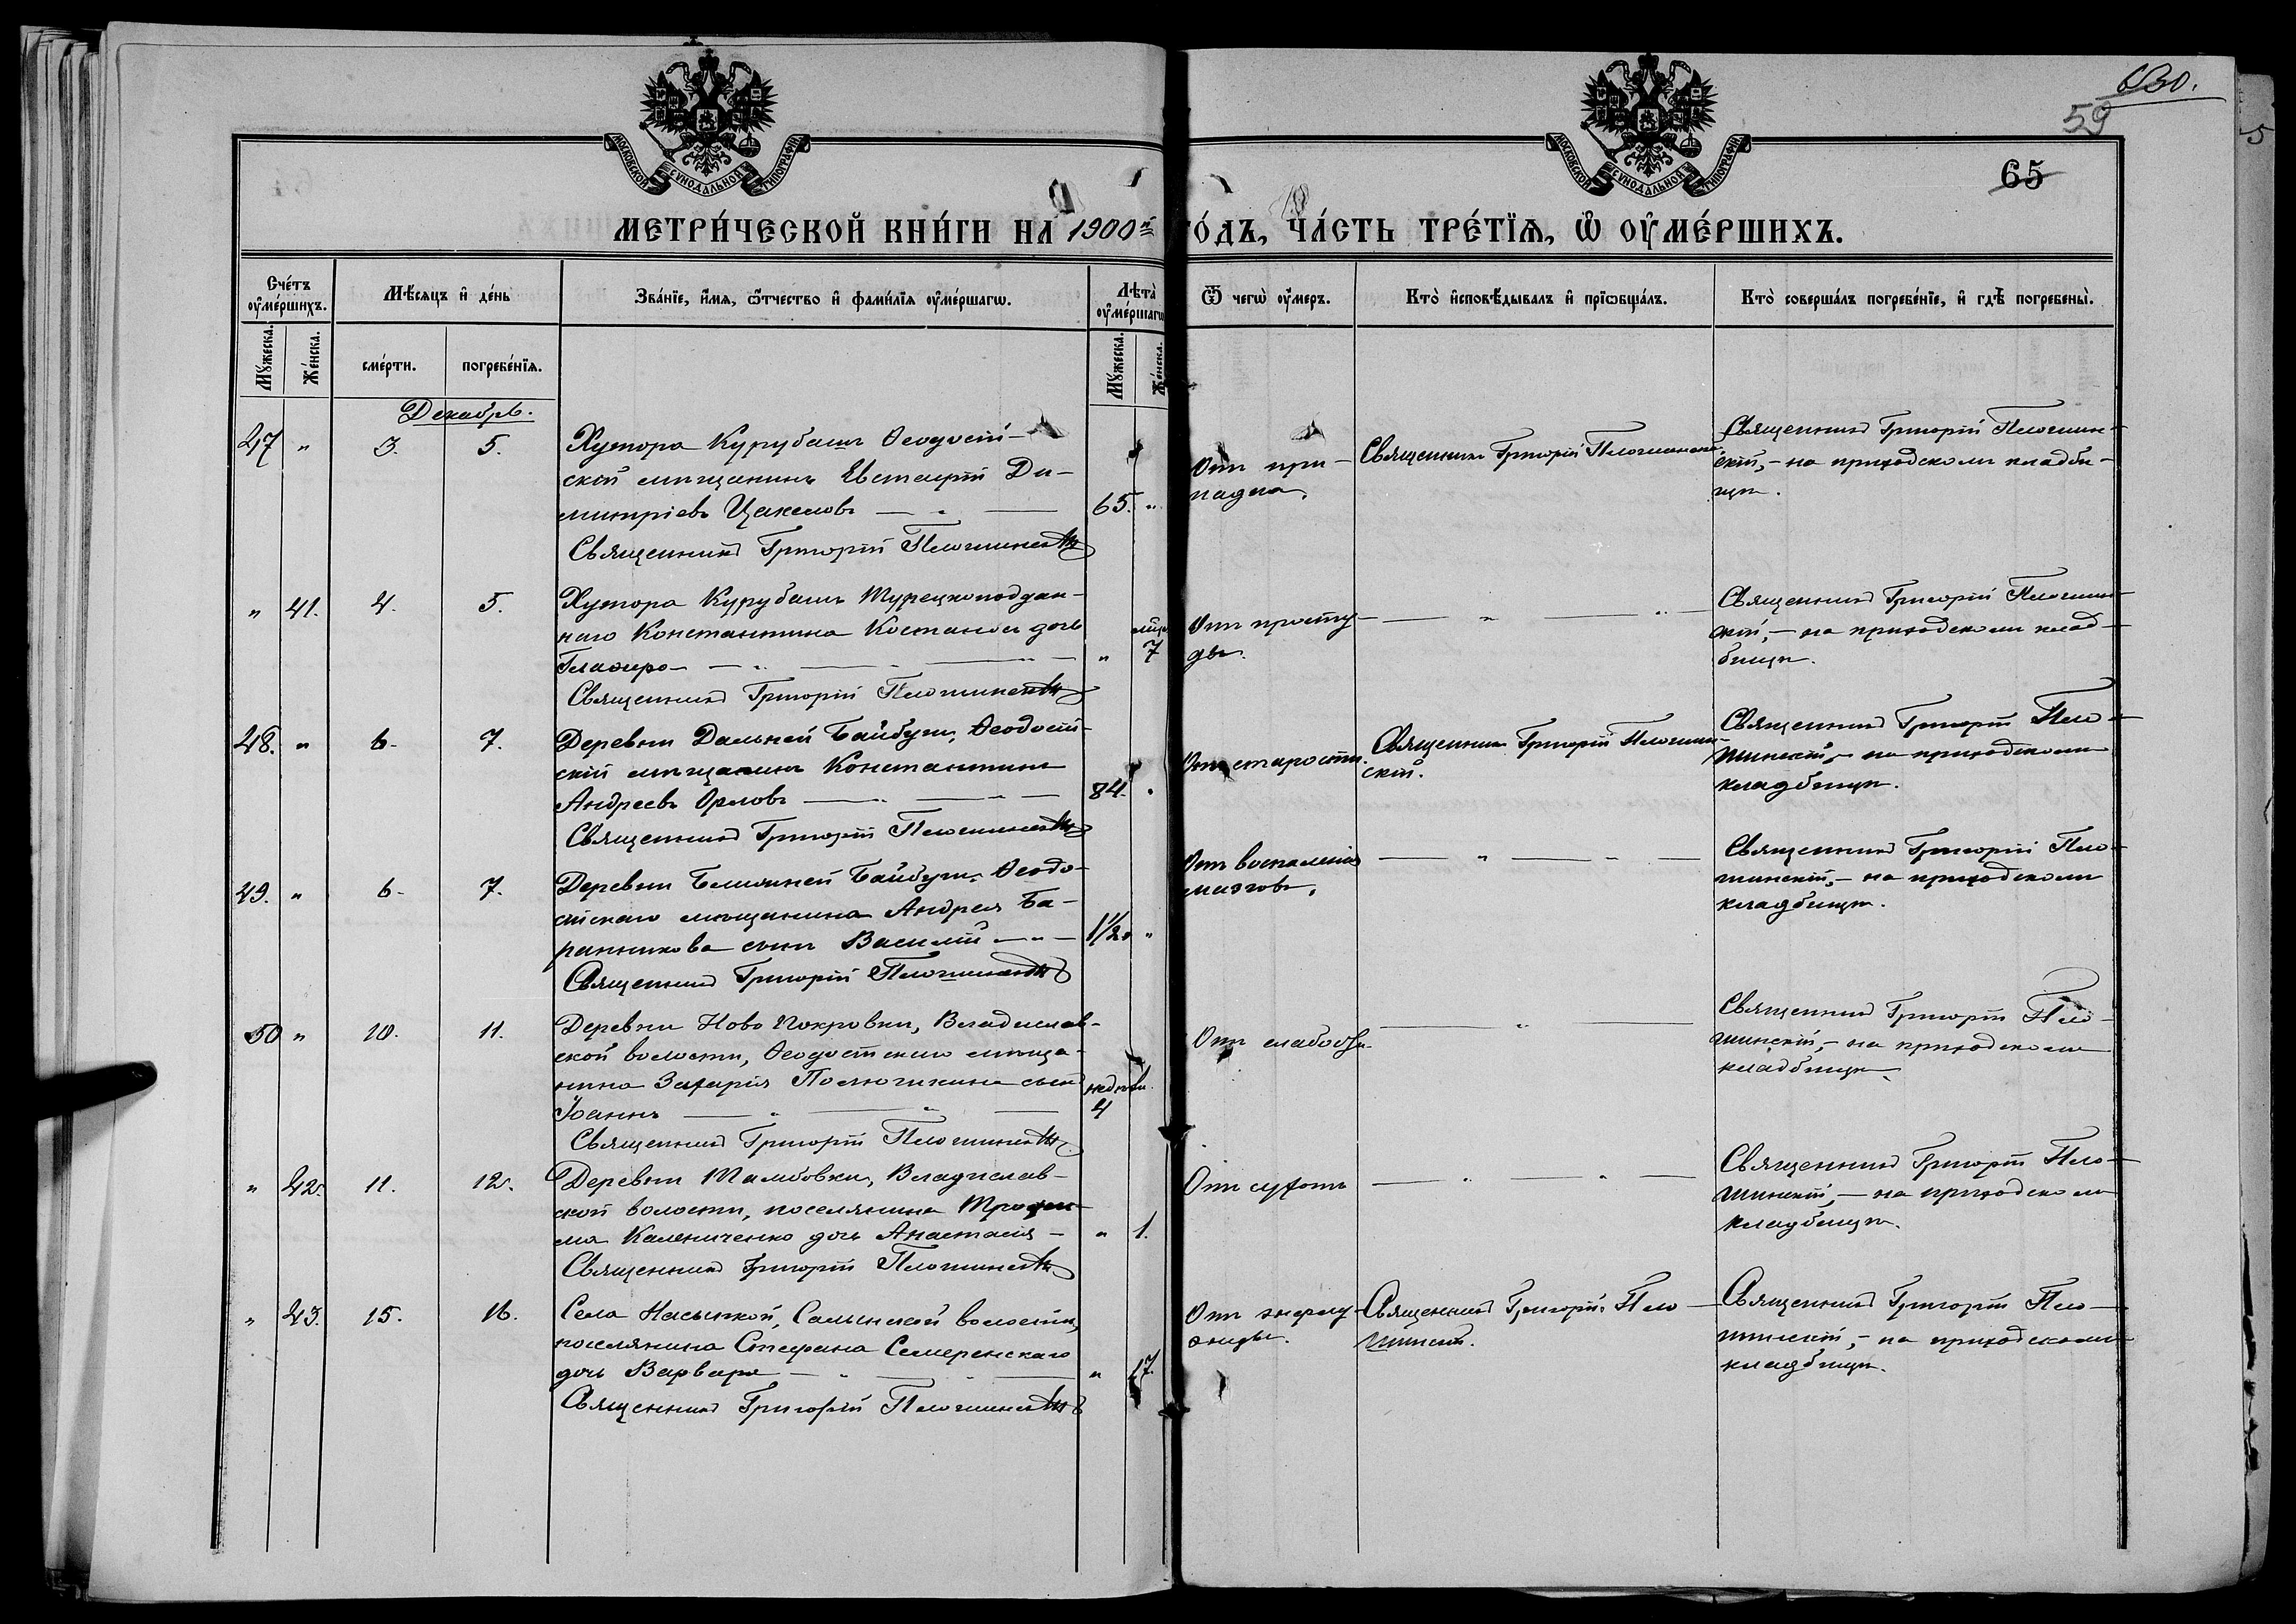 630.
59
65
МОСКОВСКОЙ СѴНОДАЛЬНОЙ ТИПОГРАФІИ
МОСКОВСКОЙ СѴНОДАЛЬНОЙ ТИПОГРАФІИ
МЕТРИ́ЧЕСКОЙ КНИ́ГИ НА 1900й ГО́ДЪ, ЧА́СТЬ ТРЕ́ТЇѦ, Ѡ҆ ОУ҆МЕ́РШИХЪ.
Сче́тъ оу҆ме́ршихъ.
Мꙋ́жеска.
Же́нска.
Мѣ́сѧцъ и҆ де́нь
сме́рти.
погребе́нїѧ.
Зва́нїе, и҆́мѧ, ѻ҆́тчество и҆ фами́лїѧ оу҆ме́ршагѡ.
Лѣта̀ оу҆ме́ршагѡ
Мꙋ́жеска.
Же́нска.
Ѿ чегѡ̀ оу҆́меръ.
Кто̀ и҆сповѣ́дывалъ и҆ прїѡбща́лъ.
Кто̀ соверша́лъ погребе́нїе, и҆ гдѣ̀ погребены̀.
Декабрь.
47 " 3. 5.
Хутора Курубашъ Ѳеодосій-
ской мѣщанинъ Евстафій Ди-
митріевъ Цакеловъ
65. "
Священникъ Григорій Плотинскій
Отъ при-
падка.
Священникъ Григорій Плотинскій
Священникъ Григорій Плотин-
скій, - на приходскомъ кладби-
щѣ.
" 41. 4. 5.
Хутора Курубашъ Турецкоподдан-
наго Константина дочь
Гликерія
" мѣс. 7
Священникъ Григорій Плотинскій
Отъ просту-
ды.
Священникъ Григорій Плотин-
скій, - на приходскомъ клад-
бищѣ.
48. " 6. 7.
Деревни Дальней Байбуги, Ѳеодосій-
скій мѣщанинъ Константинъ
Андреевъ Орловъ
84. "
Священникъ Григорій Плотинскій
Отъ старости.
Священникъ Григорій Плотин-
скій.
Священникъ Григорій Пло-
тинскій, - на приходскомъ
кладбищѣ.
49. " 6. 7.
Деревни Ближней Байбуги, Ѳеодо-
сійскаго мѣщанина Андрея Ба-
ранникова сынъ Василій
1 1/2. "
Священникъ Григорій Плотинскій
Отъ воспаленія
мозговъ.
Священникъ Григорій Пло-
тинскій, - на приходскомъ
кладбищѣ.
50 " 10. 11.
Деревни Ново Покровки, Владислав-
ской волости, Ѳеодосійскаго мѣща-
нина Захарія сынъ
Іоаннъ
недѣли. 4
Священникъ Григорій Плотинскій
Отъ слабости.
Священникъ Григорій Пло-
тинскій, - на приходскомъ
кладбищѣ.
" 42. 11. 12.
Деревни Тамбовки, Владислав-
ской волости, поселянина Трофи-
ма Калениченко дочь Анастасія
" 1.
Священникъ Григорій Плотинскій
Отъ сухотъ
Священникъ Григорій Пло-
тинскій, - на приходскомъ
кладбищѣ.
" 43. 15. 16.
Села Насыпкой, Салынской волости,
поселянина Стефана Семеренскаго
дочь Варвара
" 17.
Священникъ Григорій Плотинскій
Священникъ Григорій Пло-
тинскій.
Священникъ Григорій Пло-
тинскій, - на приходскомъ
кладбищѣ.